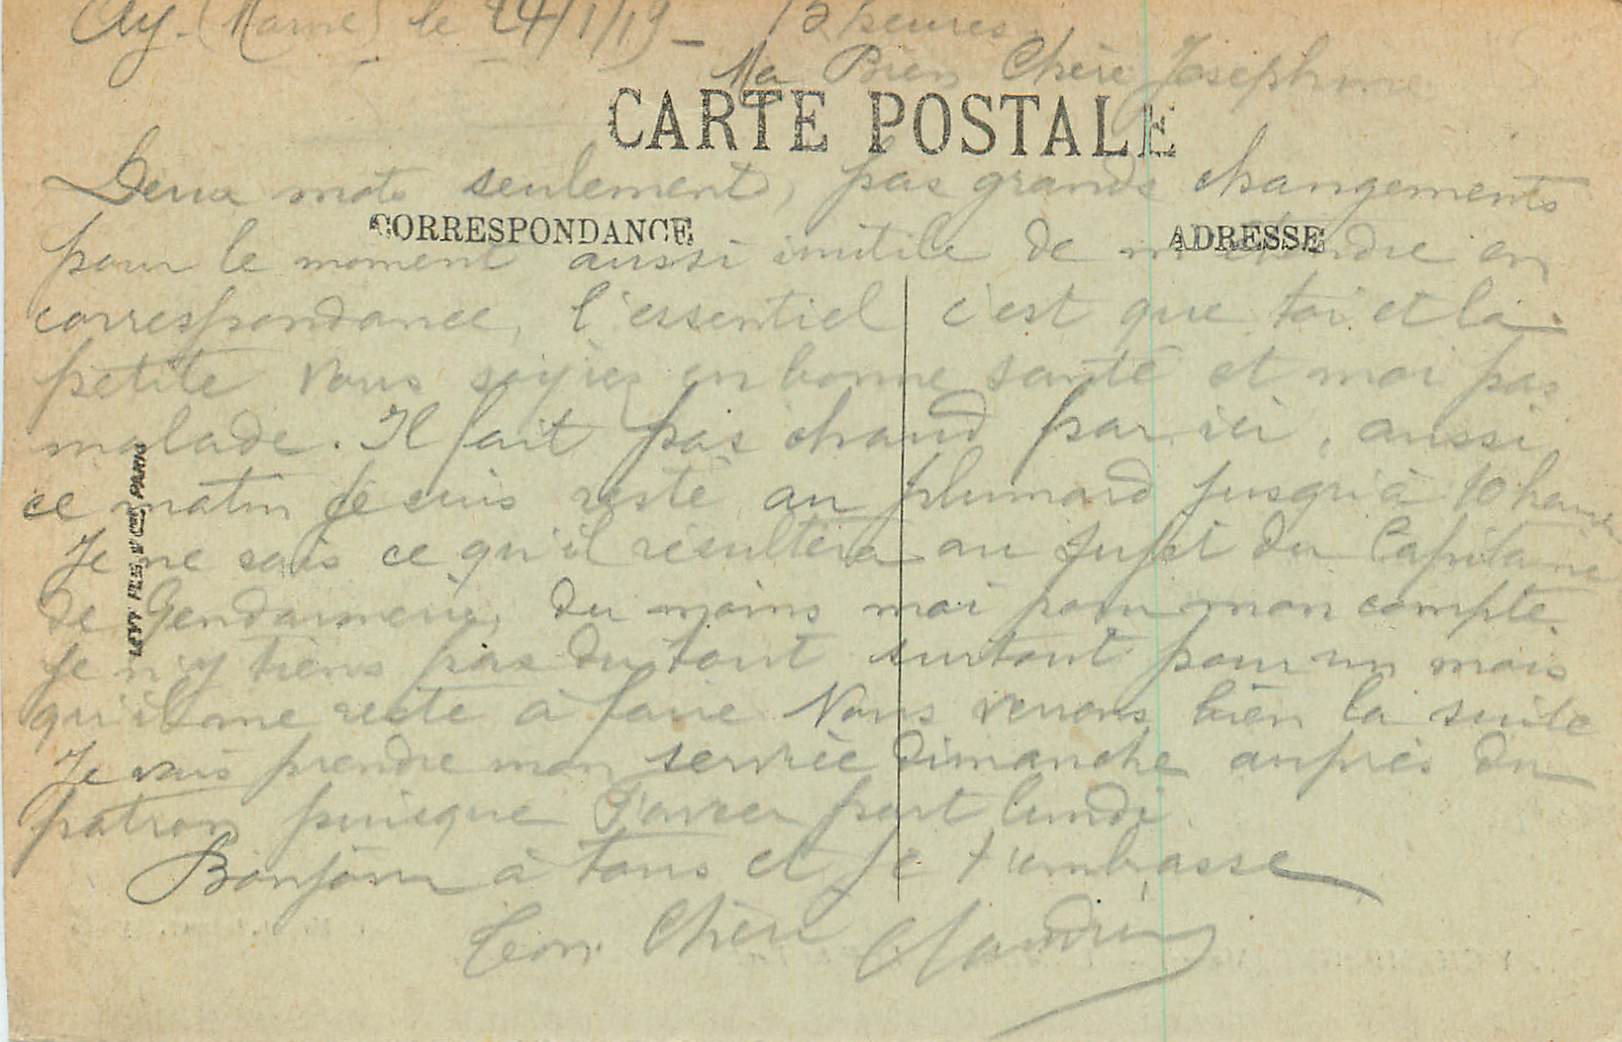 Ay (Marne) le 24/1/19 - 13 heures
Ma Bien Chère Josephine
CARTE POSTALE
Deux mots seulement, pas grands changements
CORRESPONDANCE
ADRESSE
pour le moment aussi inutile de m'étendre en
correspondance, l'essentiel c'est que toi et la
petite vous soyiez en bonne santé et moi pas
malade. Il fait pas chaud par ici, aussi
ce matin je suis resté au plumard jusqu'à 10 heures
Je ne sais ce qu'il résultera au sujet du Capitaine
de Gendarmerie, du moins moi pour mon compte
je n'y tiens pas du tout surtout pour un mois
qu'il me reste à faire Nous verrons bien la suite
Je vais prendre mon service dimanche auprès du
patron puisque part lundi.
Bonjour à tous et je t'embrasse
Ton Chéri Claudin
LEVY FILS & Cie, PARIS